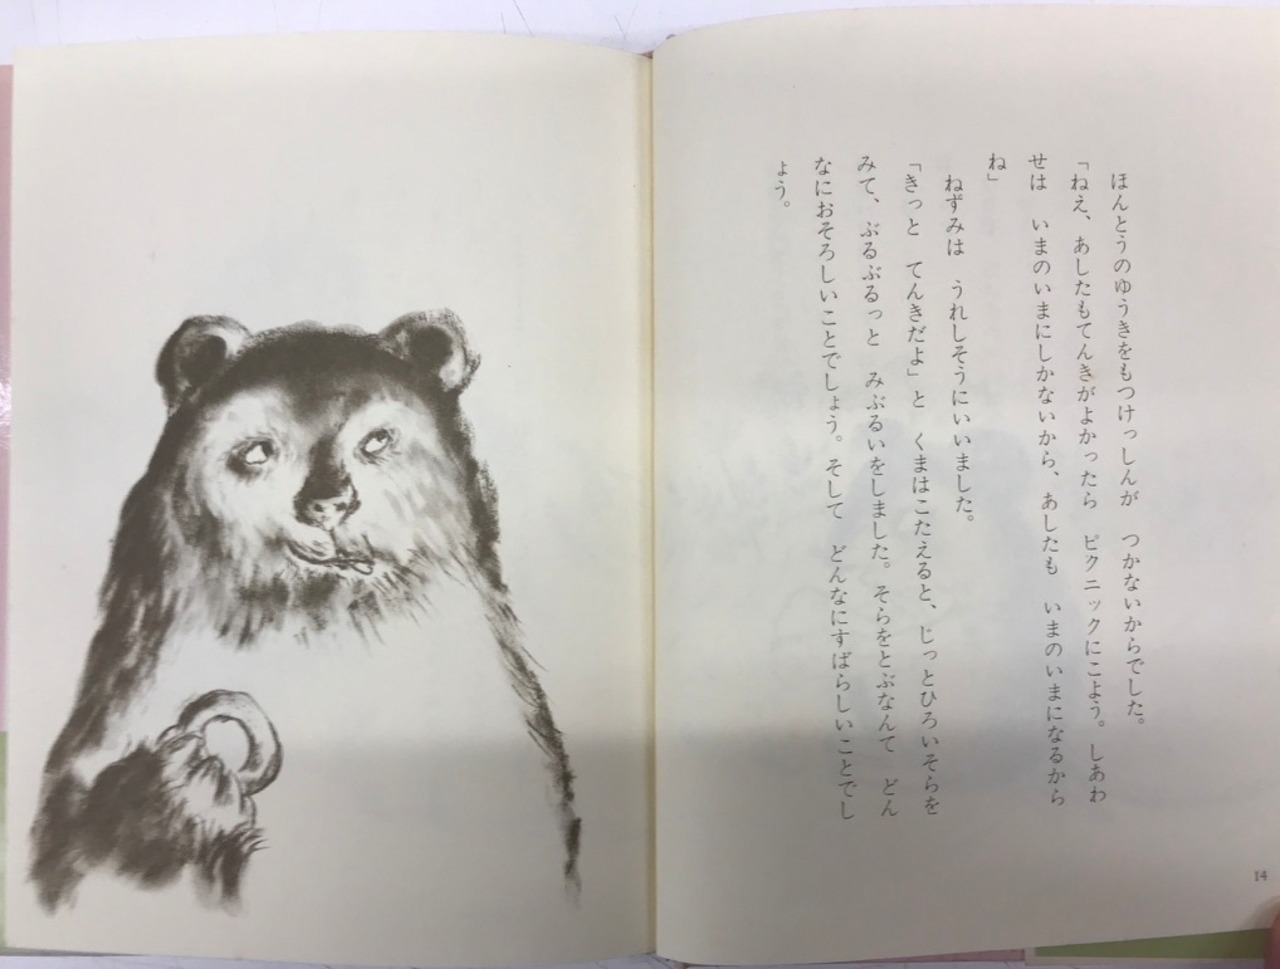 ほんとうのゆうきをもつけっしんが　つかないからでした。
「ねえ、あしたもてんきがよかったら　ピクニックにこよう。しあわ
せは　いまのいまにしかないから、あしたも　いまのいまになるから
ね」
ねずみは　うれしそうにいいました。
「きっと　てんきだよ」と　くまはこたえると、じっとひろいそらを
みて、ぶるぶるっと　みぶるいをしました。そらをとぶなんて　どん
なにおそろしいことでしょう。そして　どんなにすばらしいことでし
ょう。
14